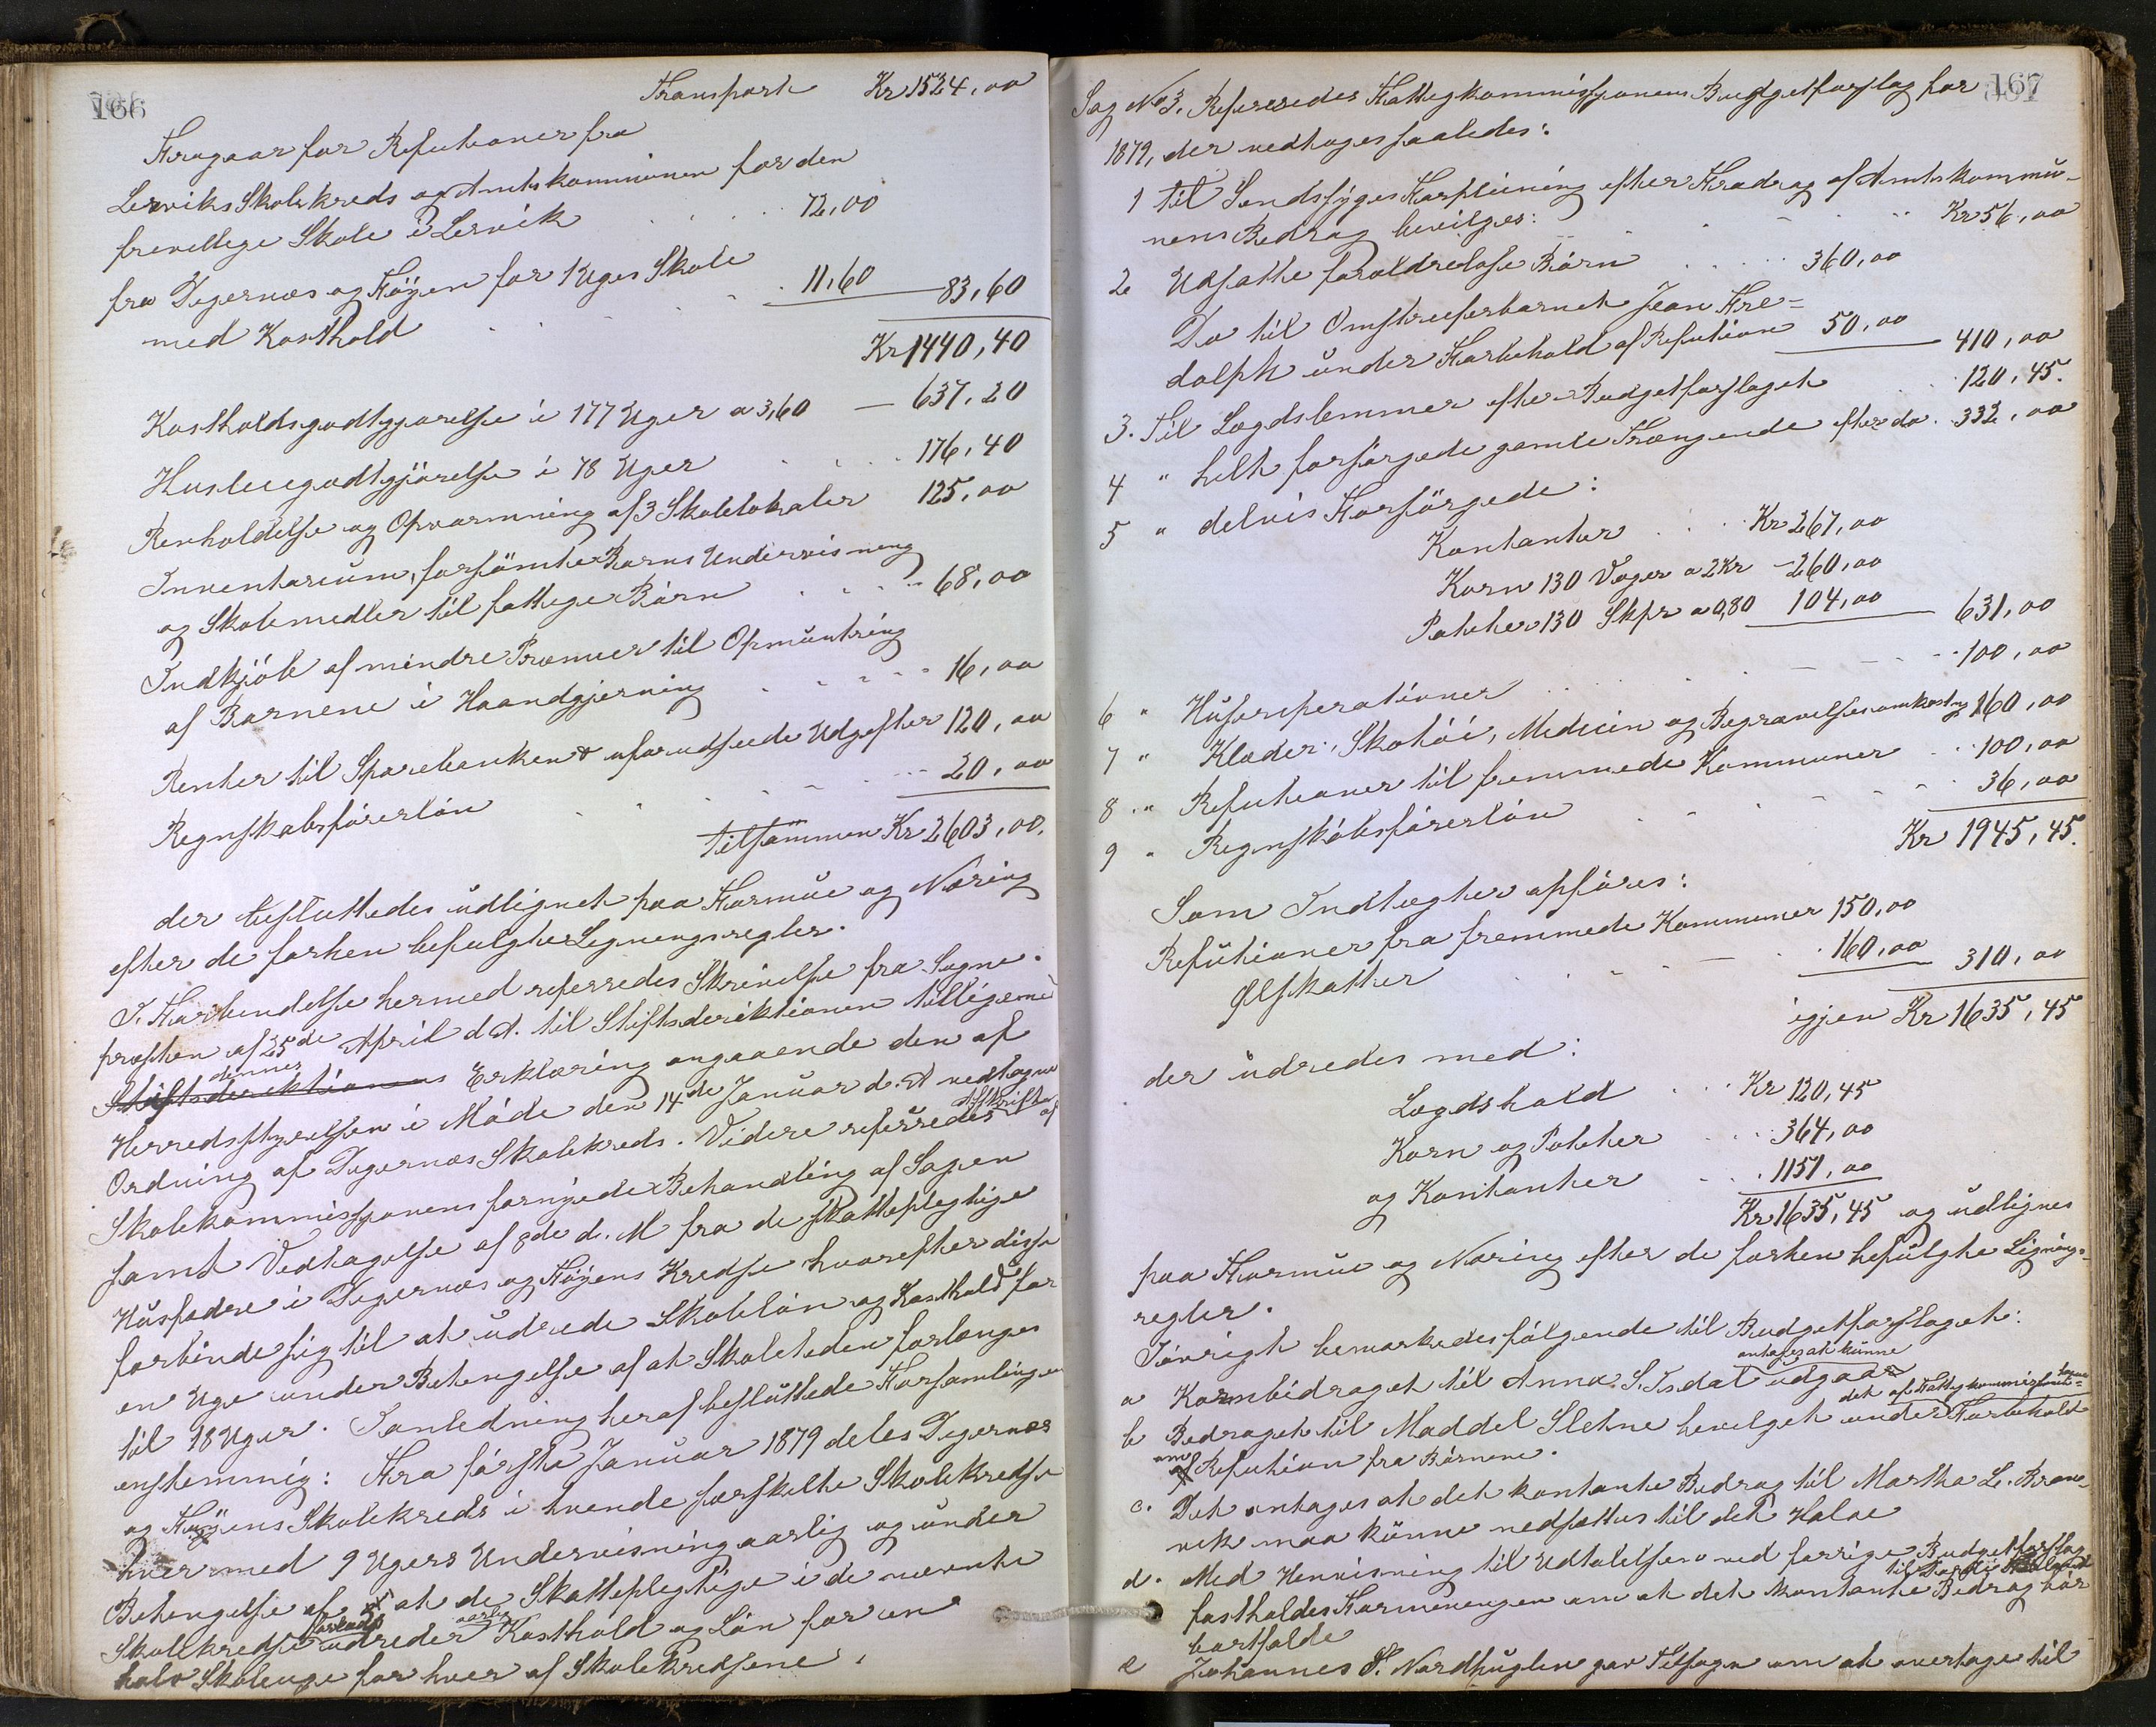 166
Transport Kr 1524,00
Fragaar for Refutioner fra
Lerviks Skolekreds og Amtskommunen for den
frivillige Skole i Lervik 72,00
fra Digernæs og Høyen for 1 Uges Skole
med Kosthold 11,60 83,60
Kr 1440,40
Kostholdsgodtgjørelse i 177 Uger a 3,60 — 637,20
Husleiegodtgjørelse i 78 Uger 176,40
Renholdelse og Opvarmning af 3 Skolelokaler 125,00
Inventarium, forsømte Børns Undervisning
og Skolemidler til fattige Børn 68,00
Indkjøb af mindre Præmier til Opmuntring
af Børnene i Haandgjerning 16,00
Renter til Sparebanken & uforudseede Udgifter 120,00
Regnskabsførerløn 20,00
tilsammen Kr 2603,00.
der besluttedes udlignet paa Formue og Næring
efter de forhen befulgte Ligningsregler.
I Forbindelse hermed referredes Skrivelse fra Sogne-
præsten af 25de April d.A. til Stiftsdirektionen tilligemed
Stiftsdirektionens dennes Erklæring angaaende den af
Herredstyrelsen i Møde den 14de Januar d.A vedtagne
Ordning af Digernæs Skolekreds. Videre referredes Afskrift af
Skolekommissjonens fornyede Behandling af Sagen
samt Vedtagelse af 8de d.M fra de skattepligtige
Husfædre i Digernæs og Høyens Kredse hvorefter disse
forbinde sig til at udrede Skoleløn og Kosthold for
en Uge under Betingelse af at Skoletiden forlænges
til 18 Uger. I anledning heraf besluttede Forsamlingen
enstemmig: Fra første Januar 1879 deles Digernæs
og Høyens Skolekreds i tvende særskilte Skolekredse
hver med 9 Ugers Undervisning aarlig og under
Betingelse af at de Skattepligtige i de nævnte
Skolekredse forlods udreder aarlig Kosthold og Løn for en
halv Skoleuge for hver af Skolekredsene.
167
Sag No 3. Referredes Fattigkommissjonens Budgetforslag for
1879, der vedtoges saaledes:
1 til Sindssyges Forpleining efter Fradrag af Amtskommu-
nens Bidrag bevilges: Kr 56,00
2 Udsatte forældreløse Børn 360,00
Do til Omstreiferbarnet Jean Fre-
dolph under Forbehold af Refution 50,00 410,00
3. Til Lægdslemmer efter Budgetforslaget 120,45.
4 " helt forsørgede gamle Trængende efter do. 332,00
5 " delvis Forsørgede:
Kontanter Kr 267,00
Korn 130 Voger a 2 Kr - 260,00
Poteter 130 Skpr a 0,80 104,00 631,00
6 " Husreperationer 100,00
7 " Klæder, Skotøi, Medicin og Begravelsesomkostng 160,00
8 " Refutioner til fremmede Kommuner 100,00
9 " Regnskabsførerløn 36,00
Kr 1945,45.
Som Indtægter opføres:
Refutioner fra fremmede Kommuner 150,00
Ølskatter 160,00 310,00
igjen Kr 1635,45
der udredes med:
Lægdshold Kr 120,45
Korn og Poteter 364,00
og Kontanter 1151,00
Kr 1635,45 og udlignes
paa Formue og Næring efter de forhen befulgte Lignings-
regler.
Iøvrigt bemærkedes følgende til Budgetforslaget:
a Kornbidraget til Anna S. Isdal antages at kunne udgaar
b Bidraget til Maddel Sletne bevilget under det af Fattigkommissionen Forbehold
om af Refution fra Børnene.
c. Det antages at det kontante Bidrag til Martha L. Brane-
vik maa kunne nedsættes til det Halve
d. Med Henvisning til Udtalelsen ved forrige Budgetforslag
fastholdes Formeningen om at det kontante Bidrag bør
bortfalde
e Johannes F. Nordhuglen gav Tilsagn om at overtage til